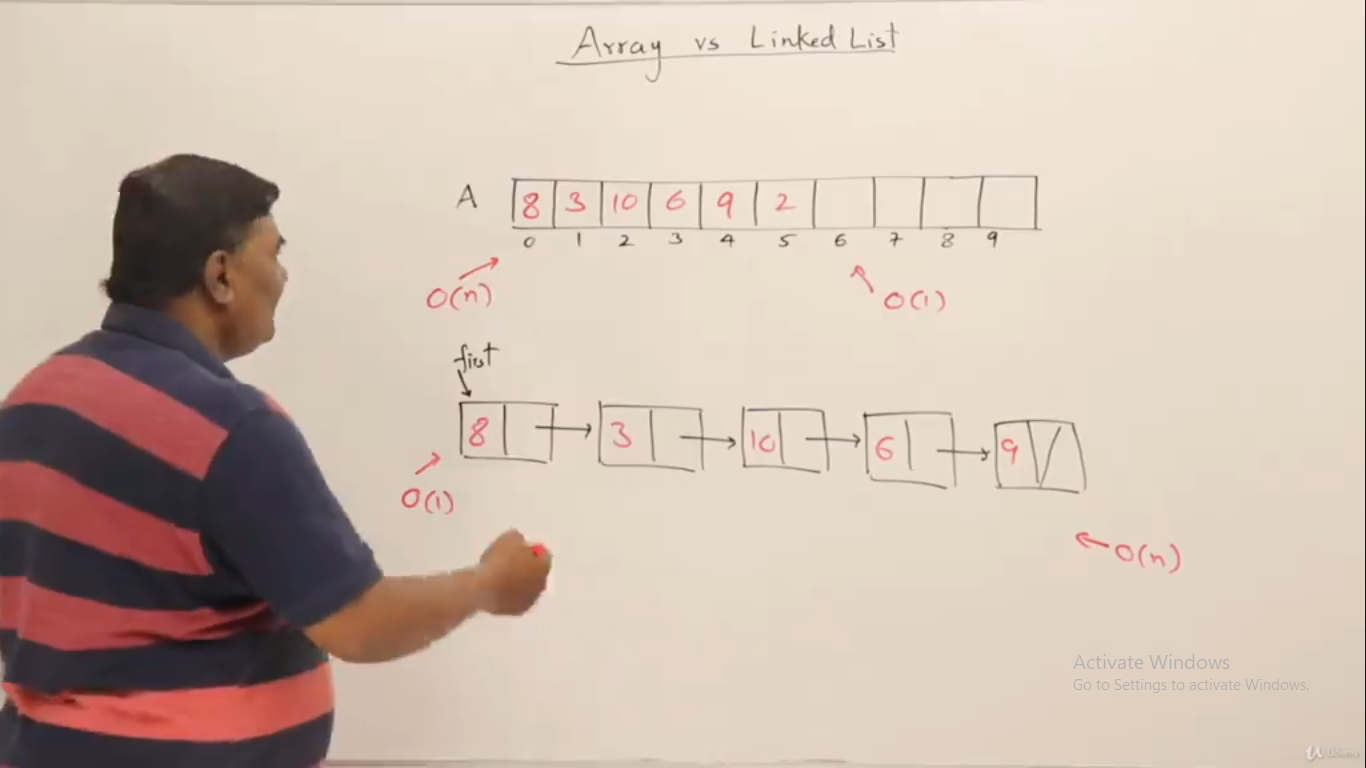 Array vs Linked List
A 8 3 10 6 9 2
0 1 2 3 4 5 6 7 8 9
O(n) O(1)
first
8 3 10 6 9
O(1)
O(n)
Activate Windows
Go to Settings to activate Windows.
Udemy